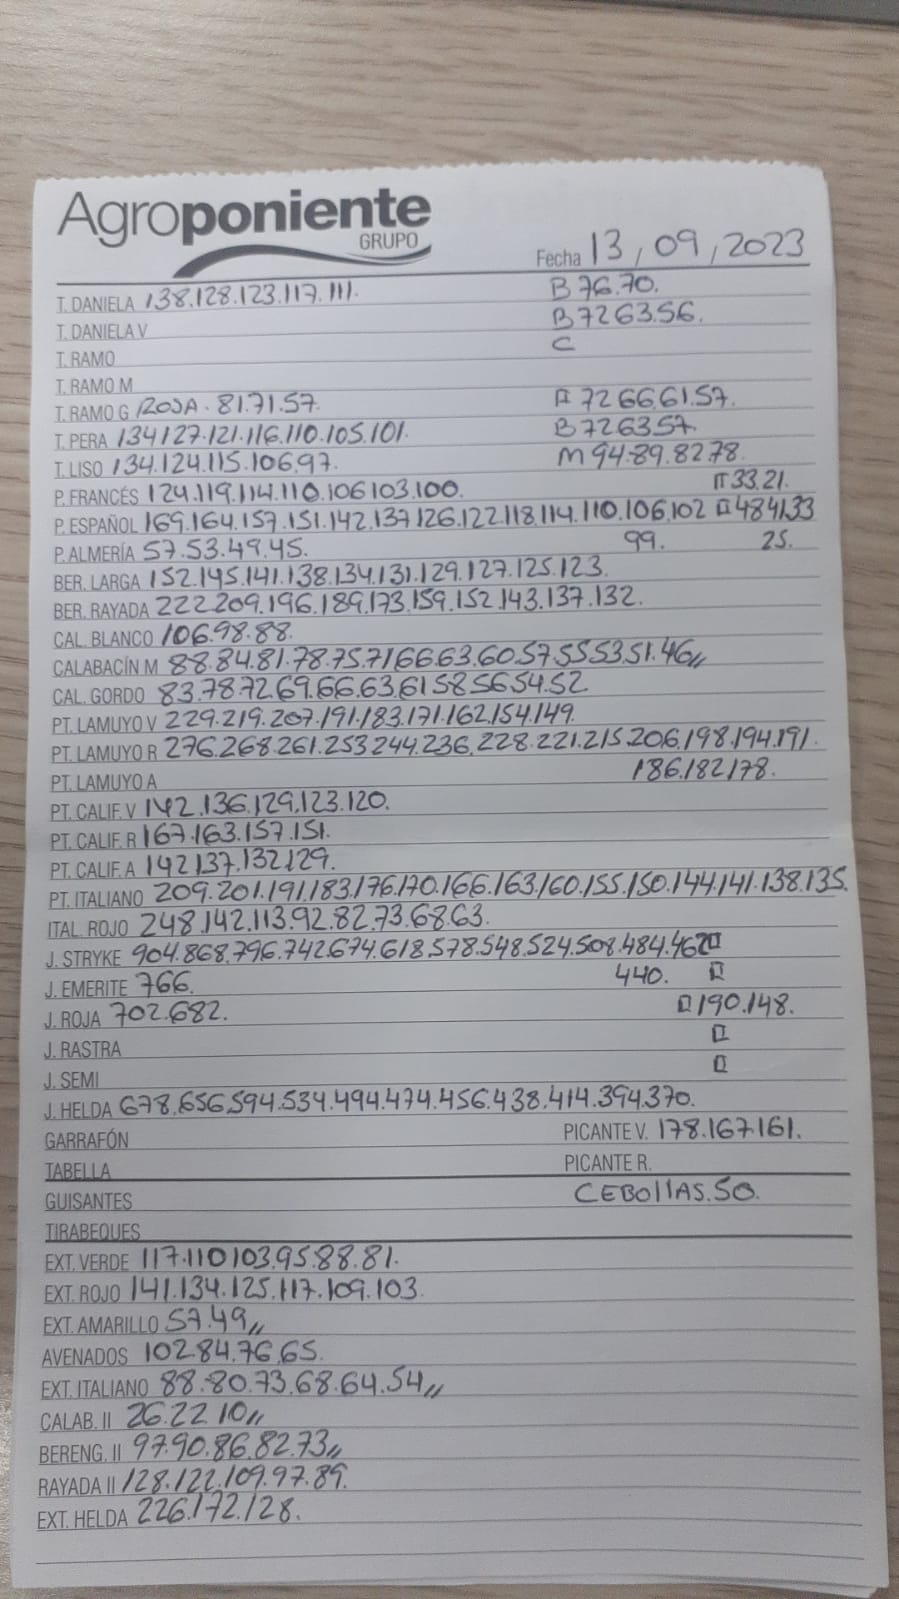 Agroponiente
GRUPO
Fecha 13, 09, 2023
T. DANIELA 138.128.123.117.111. B 76.70.
T. DANIELA V B 72 63.56.
T. RAMO C
T. RAMO M
T. RAMO G ROJA. 81.71.57. 72 66.61.57.
T. PERA 134127.121.116.110.105.101. B 72 63 57.
T. LISO 134.124.115.106.97. M 94.89.82 78.
P. FRANCÉS 124.119.114.110.106 103.100. 33.21.
P. ESPAÑOL 169.164.157.151.142.137 126.122.118.114.110.106.102 484133
P. ALMERÍA 57.53.49.45. 99. 25.
BER. LARGA 152.145.141.138.134.131.129.127.125.123.
BER. RAYADA 222.209.196.189.173.159.152.143.137.132.
CAL. BLANCO 106.98.88.
CALABACÍN M 88.84.81.78.75.71 66.63.60.57.55 53 51.46,,
CAL. GORDO 83.78.72 69.66.63.61 58 56 54.52
PT. LAMUYO V 229.219.207.191.183.171.162.154.149.
PT. LAMUYO R 276.268.261.253 244.236.228.221.215.206.198.194.191.
PT. LAMUYO A 186.182178.
PT. CALIF. V 142.136.129.123.120.
PT. CALIF. R 167.163.157.151.
PT. CALIF. A 142137.132129.
PT. ITALIANO 209.201.191.183.176.170.166.163.160.155.150.144.141.138.135.
ITAL. ROJO 248.142.113.92.82.73.68.63.
J. STRYKE 904.868.796.742.674.618.578.548.524.508.484.462
J. EMERITE 766. 440.
J. ROJA 702.682. 190.148.
J. RASTRA
J. SEMI
J. HELDA 678.656.594.534.494.474.456.438.414.394.370.
GARRAFÓN PICANTE V. 178.167161.
TABELLA PICANTE R.
GUISANTES CEBOllAS.50.
TIRABEQUES
EXT. VERDE 117.110 103.95.88.81.
EXT. ROJO 141.134.125.117.109.103.
EXT. AMARILLO 57.49,,
AVENADOS 102.84.76.65.
EXT. ITALIANO 88.80.73.68.64.54,,
CALAB. II 26.22 10,,
BERENG. II 97.90.86.82.73,,
RAYADA II 128.122.109.97.89.
EXT. HELDA 226.172.128.